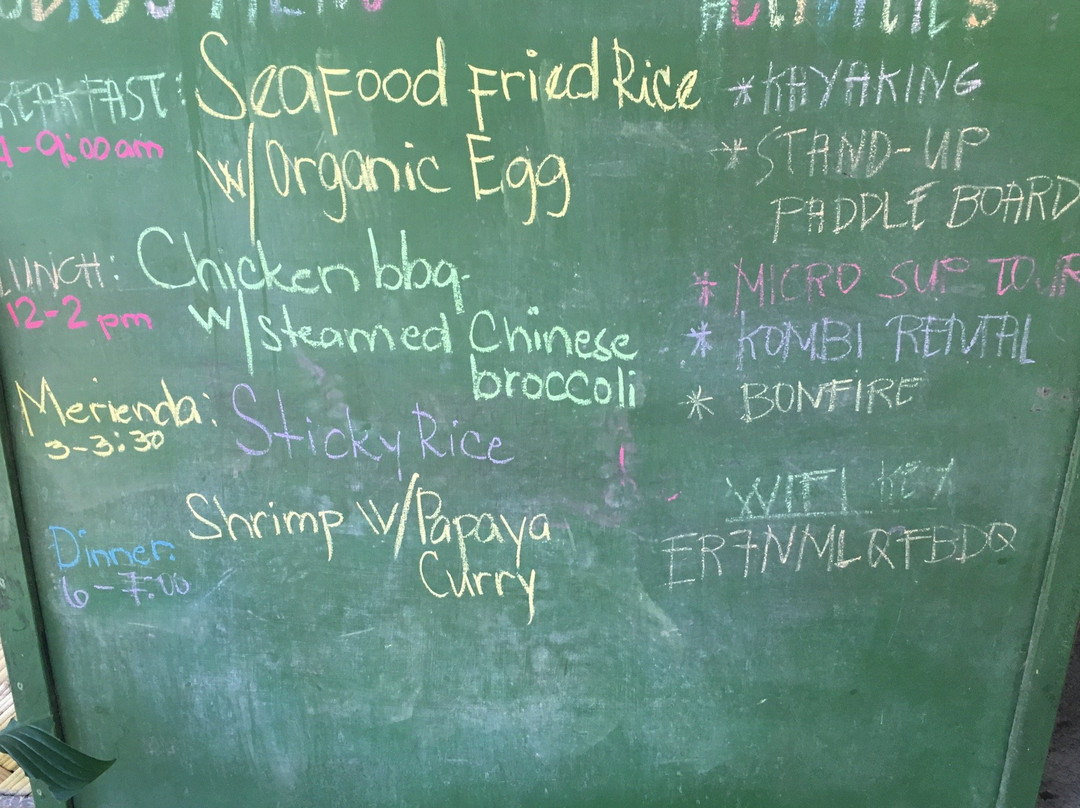 MENU
BREAKFAST: Seafood Fried Rice
-9:00am w/Organic Egg
LUNCH: Chicken bbq
12-2 pm w/steamed Chinese broccoli
Merienda: Sticky Rice
3-3:30
Dinner: Shrimp w/Papaya Curry
6-7:00
ACTIVITIES
*KAYAKING
*STAND-UP
PADDLE BOARD
* MICRO SUP TOUR
* KOMBI RENTAL
* BONFIRE
WIFI KEY
ER7NMLQTBDQ